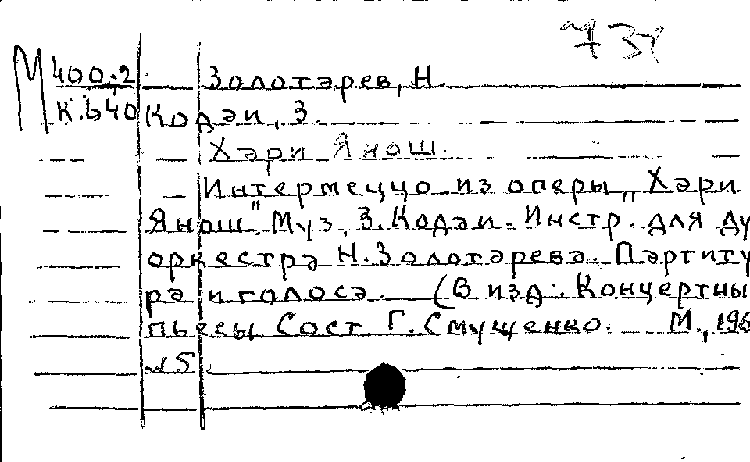 73
М 400.2 Золотарев, Н.
К.640 Кодаи, З.
Хари Янош.
Интермеццо из оперы „Хари
Янош". Муз. З. Кодаи. Инстр. для ду
оркестра Н. Золотарева. Партиту
ра и голоса. (В изд: Концертны
пьесы Сост Г. Смущенко. М., 196
№5